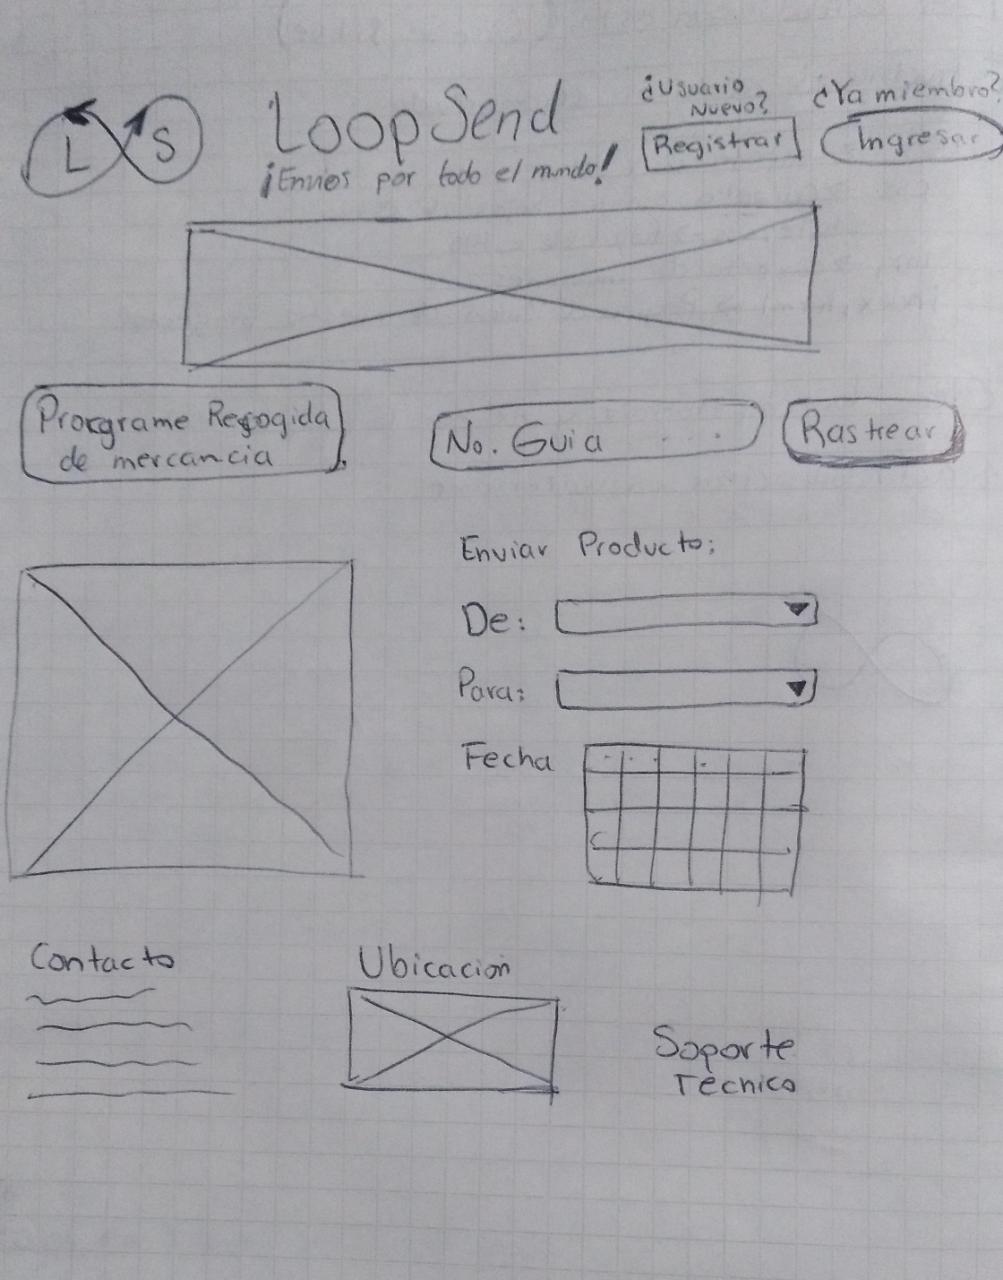 L S
LoopSend
¡Envios por todo el mundo!
¿Usuario
Nuevo?
Registrar
¿Ya miembro?
Ingresar
Programe Recogida
de mercancia
No. Guia ...
Rastrear
Enviar Producto:
De:
Para:
Fecha
Contacto
Ubicacion
Soporte
Tecnico